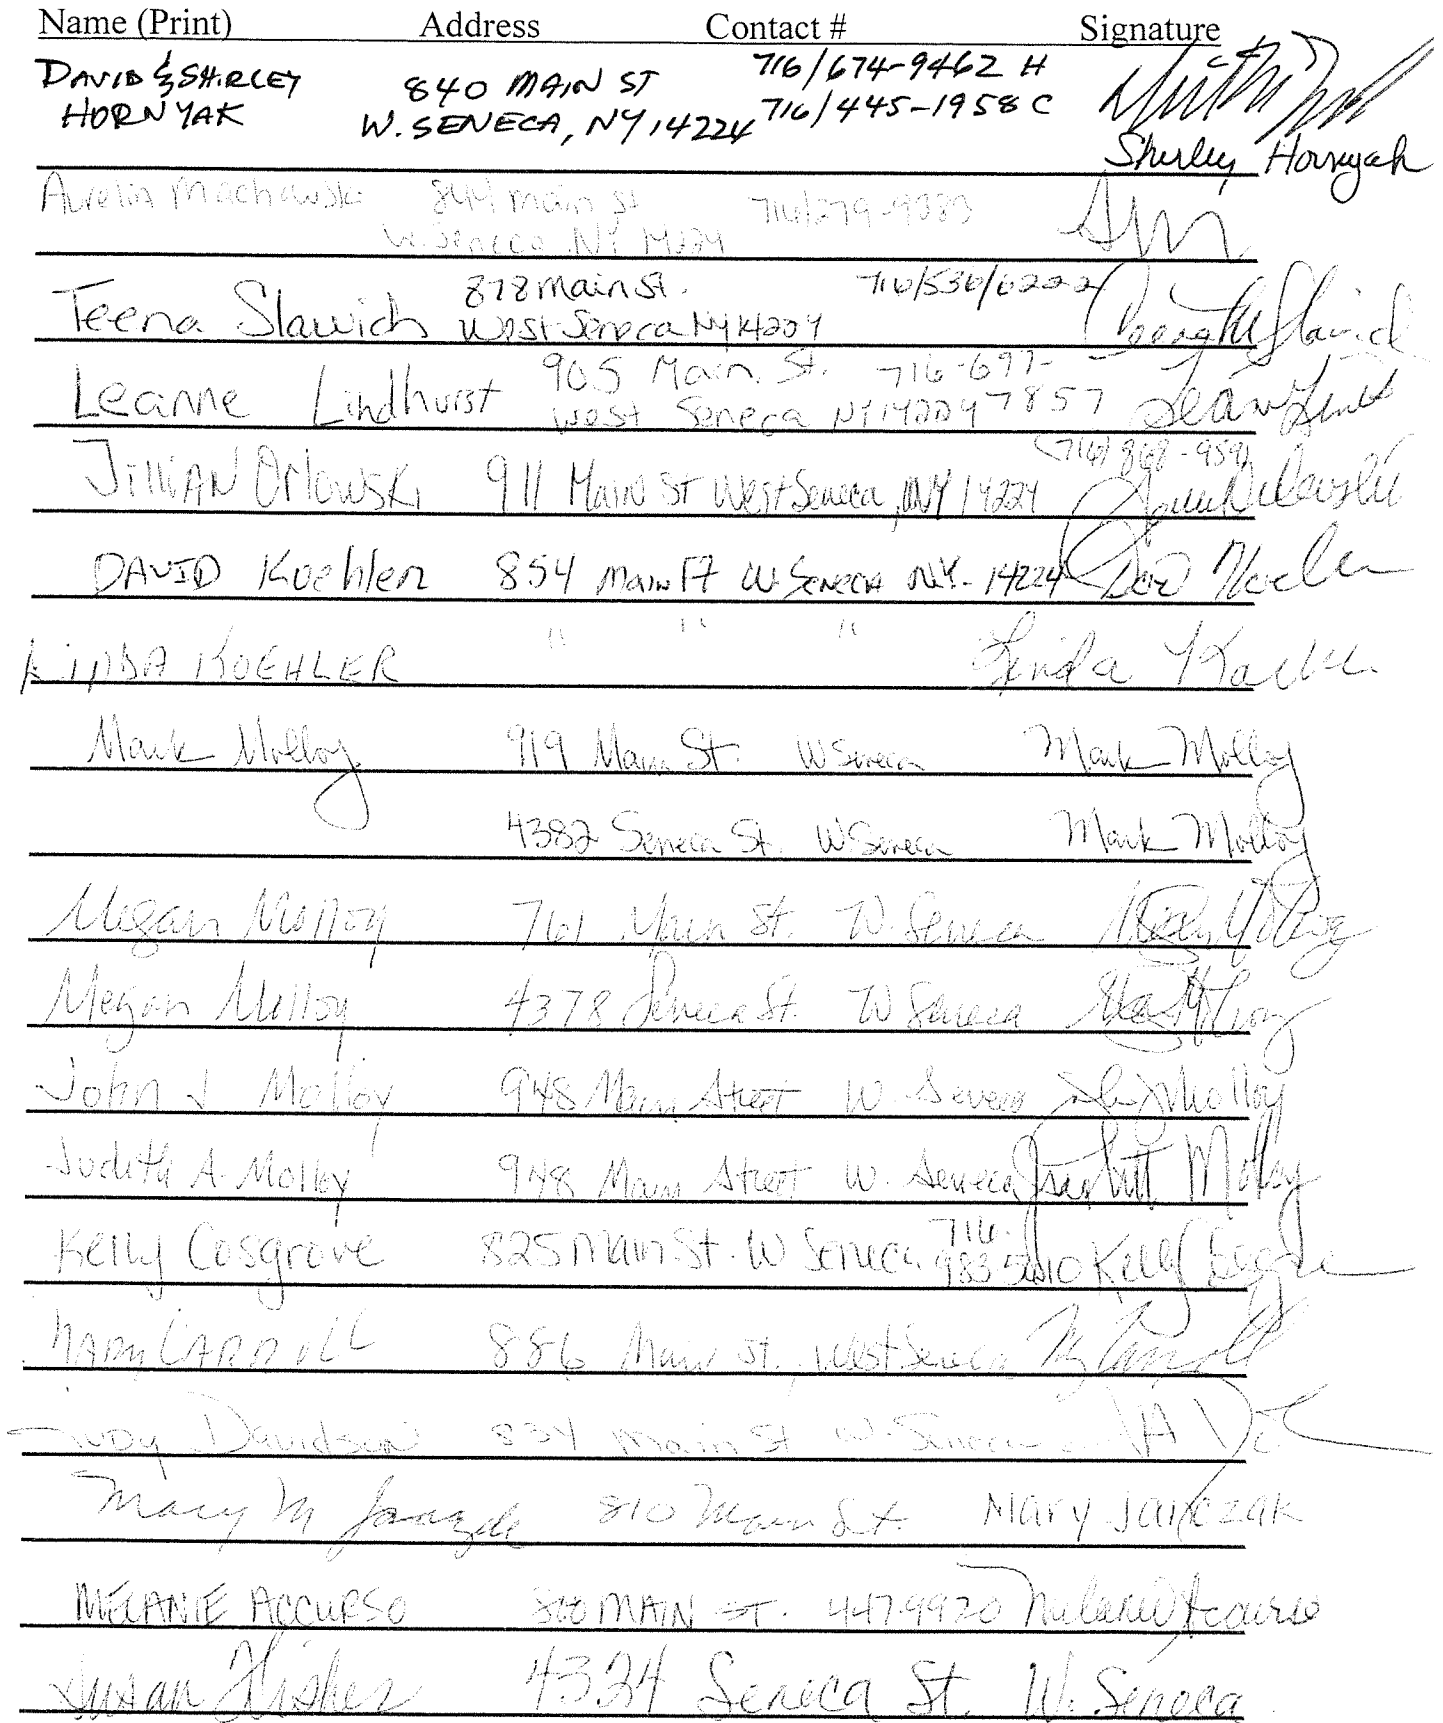 Name (Print) Address Contact # Signature
DAVID & SHIRLEY 840 MAIN ST 716/674-9462 H
HORNYAK W. SENECA, NY 14224 716/445-1958 C
Shirley Hornyak
Aurelia Machowski 844 main st 716/279-9383
W. Seneca NY 14224
Teena Slawich 878 main st. 716/536/6222
West Seneca NY 14224
Leanne Lindhurst 905 Main St. 716-697-
West Seneca NY 14224 7857
Jillian Orlowski 911 Main St West Seneca, NY 14224 (716) 868-959
DAVID Koehler 854 Main W. Seneca N.Y. 14224
LINDA KOEHLER " " " Linda
Mark Molloy 919 Main St. W Seneca Mark Molloy
4382 Seneca St. W Seneca Mark Molloy
Megan Molloy 761 Main St. W. Seneca
Megan Molloy 4378 Seneca St. W Seneca
John J Molloy 948 Main Street W. Seneca John J Molloy
Judith A. Molloy 948 Main Street W. Seneca Judith Molloy
Kelly Cosgrove 825 Main St. W Seneca 716-
Kelly Cosgrove
MARY CARROLL 886 Main St., West Seneca
Davidson 834 Main St W. Seneca
Mary M Janczak 810 Main St. Mary Janczak
MELANIE ACCURSO MAIN ST. 447-9920 Melanie Accurso
Susan Fisher 4324 Seneca St. W. Seneca